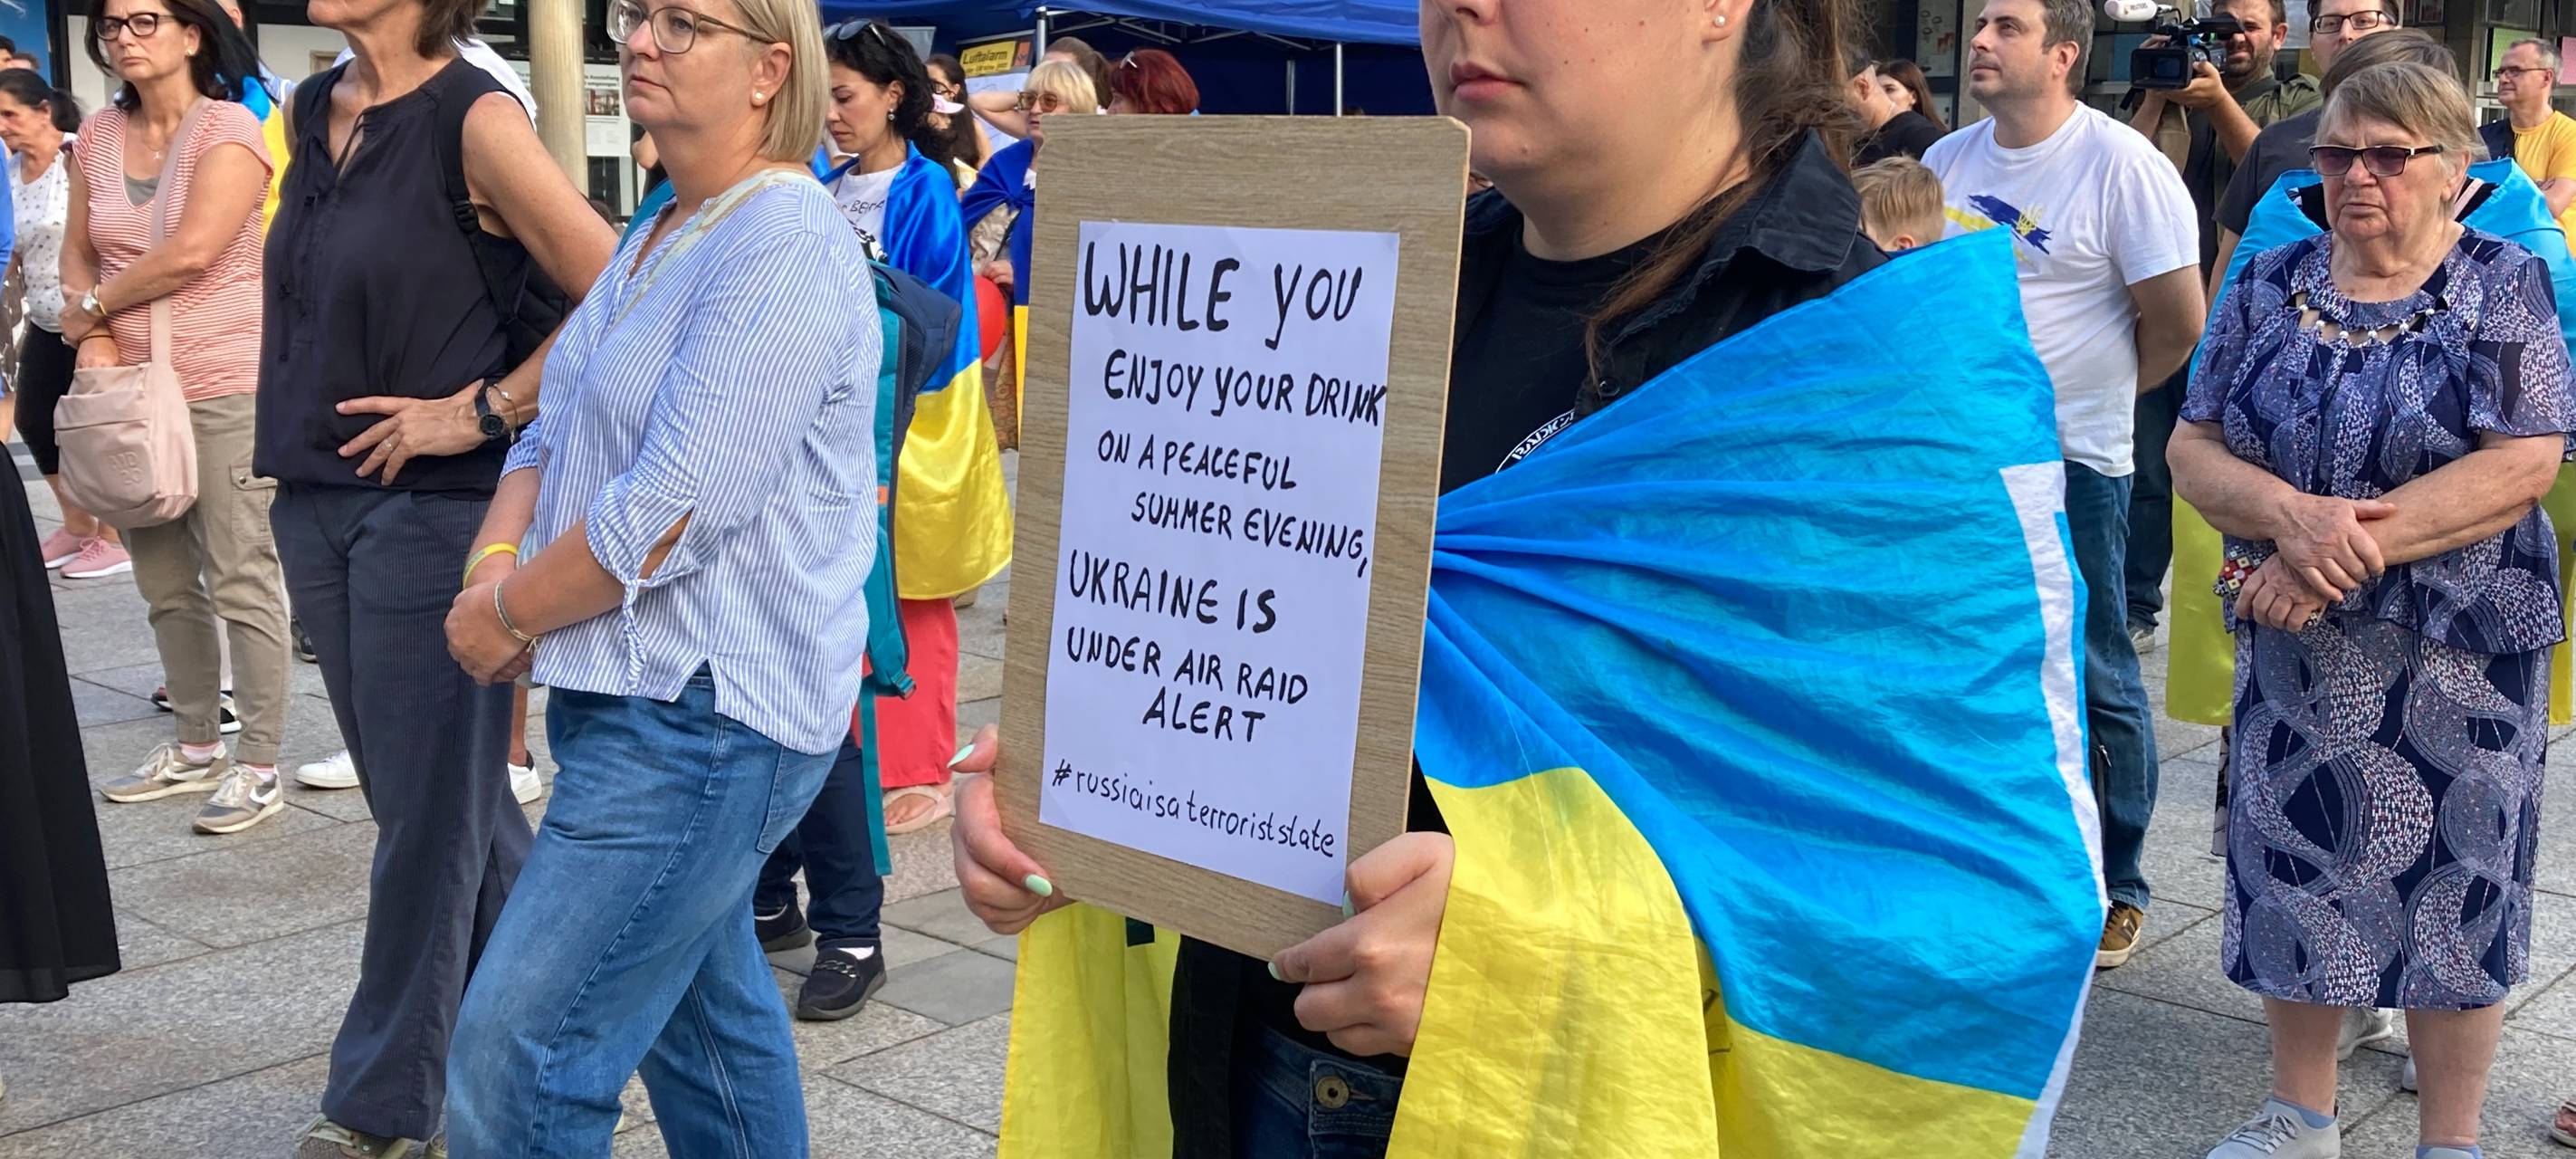 WHILE YOU
ENJOY YOUR DRINK
ON A PEACEFUL
SUMMER EVENING,
UKRAINE IS
UNDER AIR RAID
ALERT
#russiaisaterroriststate
Luftalarm